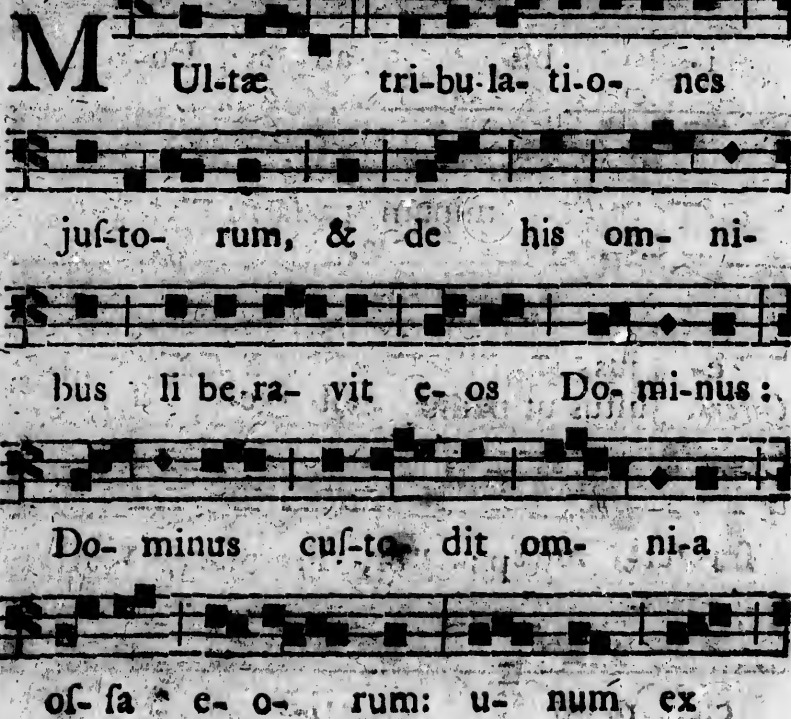 MUl-tæ tri-bu-la-ti-o-nes
juſ-to-rum, & de his om-ni-
bus li be-ra-vit e-os Do-mi-nus:
Do-minus cuſ-to-dit om-ni-a
oſ-ſa e-o-rum: u-num ex